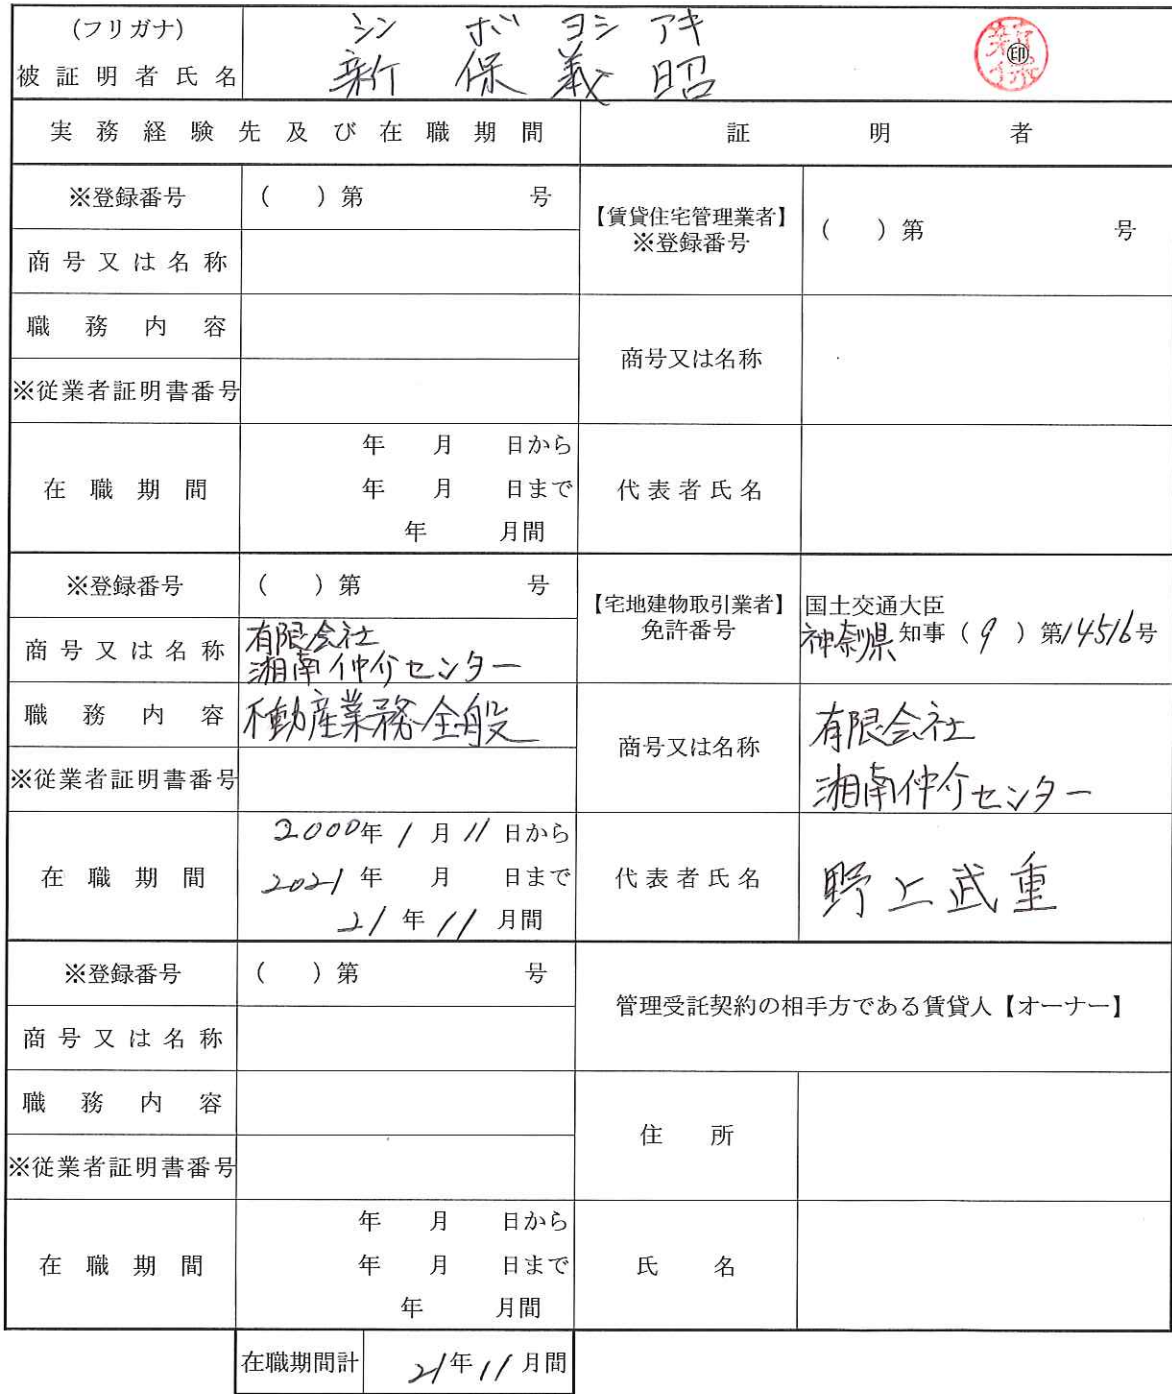 (フリガナ) シン ボ ヨシ アキ
被証明者氏名 新保義昭 ㊞
実務経験先及び在職期間 証明者
※登録番号 ( )第 号
商号又は名称
職務内容
※従業者証明書番号
在職期間
年 月 日から
年 月 日まで
年 月間
【賃貸住宅管理業者】
※登録番号
( )第 号
商号又は名称
代表者氏名
※登録番号 ( )第 号
商号又は名称
有限会社
湘南仲介センター
職務内容 不動産業務全般
※従業者証明書番号
在職期間
2000年1月11日から
2021年 月 日まで
21年11月間
【宅地建物取引業者】
免許番号
国土交通大臣
神奈県知事(9)第14516号
商号又は名称
有限会社
湘南仲介センター
代表者氏名 野上武重
※登録番号 ( )第 号
商号又は名称
職務内容
※従業者証明書番号
在職期間
年 月 日から
年 月 日まで
年 月間
管理受託契約の相手方である賃貸人【オーナー】
住所
氏名
在職期間計 21年11月間